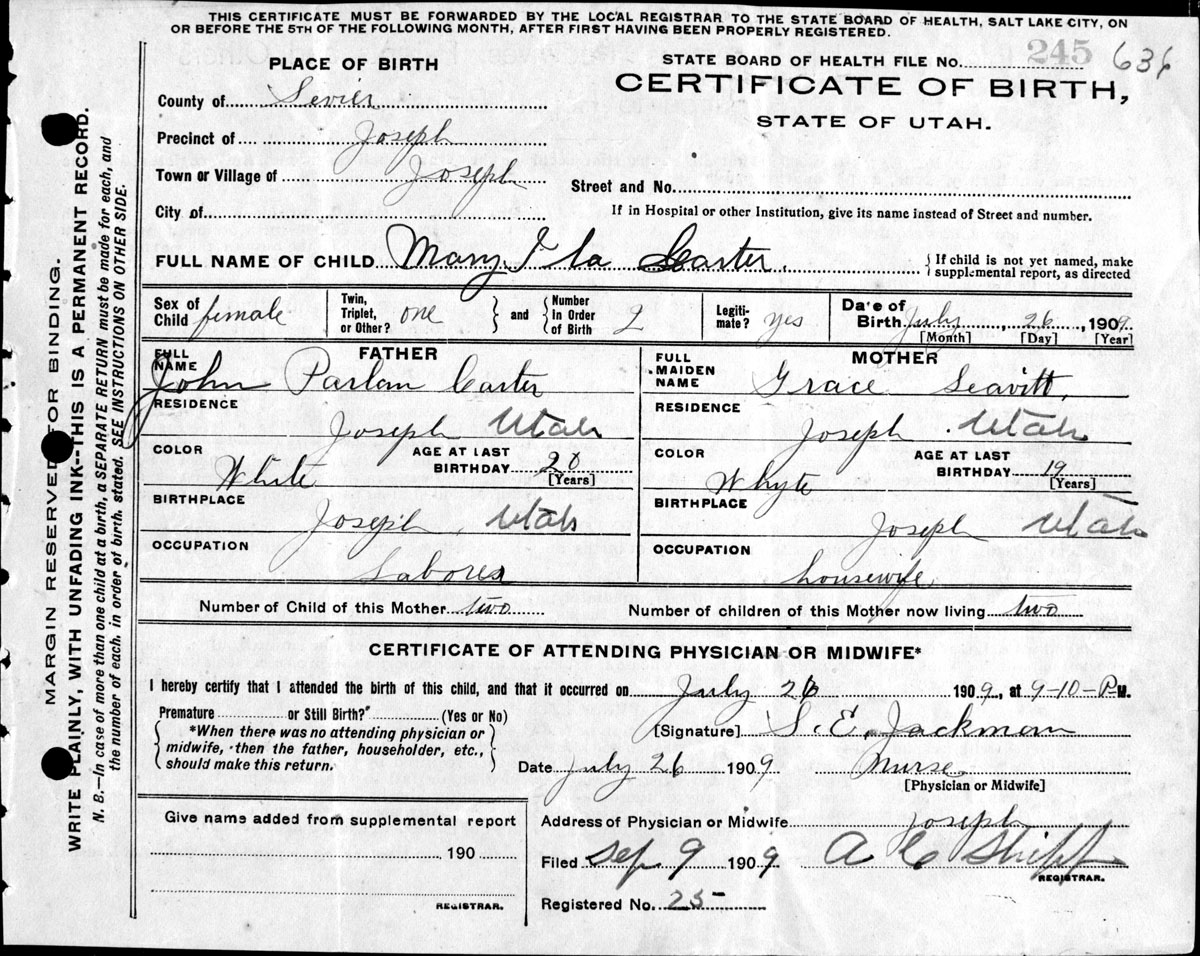 THIS CERTIFICATE MUST BE FORWARDED BY THE LOCAL REGISTRAR TO THE STATE BOARD OF HEALTH, SALT LAKE CITY, ON
OR BEFORE THE 5TH OF THE FOLLOWING MONTH, AFTER FIRST HAVING BEEN PROPERLY REGISTERED.
MARGIN RESERVED FOR BINDING.
WRITE PLAINLY, WITH UNFADING INK--THIS IS A PERMANENT RECORD.
N. B.—In case of more than one child at a birth, a SEPARATE RETURN must be made for each, and
the number of each, in order of birth, stated. SEE INSTRUCTIONS ON OTHER SIDE.
PLACE OF BIRTH
County of Sevier
Precinct of Joseph
Town or Village of Joseph
City of
STATE BOARD OF HEALTH FILE No. 245 636
CERTIFICATE OF BIRTH,
STATE OF UTAH.
Street and No.
If in Hospital or other Institution, give its name instead of Street and number.
FULL NAME OF CHILD Mary Ila Carter. { If child is not yet named, make supplemental report, as directed
Sex of Child female
Twin, Triplet, or Other? one } and { Number In Order of Birth 2
Legitimate? yes
Date of Birth July, 26, 1909.
[Month] [Day] [Year]
FATHER
FULL NAME John Parlan Carter
RESIDENCE
Joseph Utah
COLOR White
AGE AT LAST BIRTHDAY 20
[Years]
BIRTHPLACE Joseph, Utah
OCCUPATION
Laborer
MOTHER
FULL MAIDEN NAME Grace Leavitt,
RESIDENCE
Joseph Utah
COLOR Whyte
AGE AT LAST BIRTHDAY 19
[Years]
BIRTHPLACE Joseph Utah
OCCUPATION
housewife.
Number of Child of this Mother two Number of children of this Mother now living two
CERTIFICATE OF ATTENDING PHYSICIAN OR MIDWIFE*
I hereby certify that I attended the birth of this child, and that it occurred on July 26 1909, at 9-10-P M.
Premature or Still Birth? (Yes or No)
{ *When there was no attending physician or midwife, then the father, householder, etc., should make this return. }
[Signature] S. E. Jackman
Date July 26 1909 Nurse
[Physician or Midwife]
Give name added from supplemental report
190
REGISTRAR.
Address of Physician or Midwife Joseph
Filed Sep 9 1909 A C Shipp
REGISTRAR.
Registered No. 25